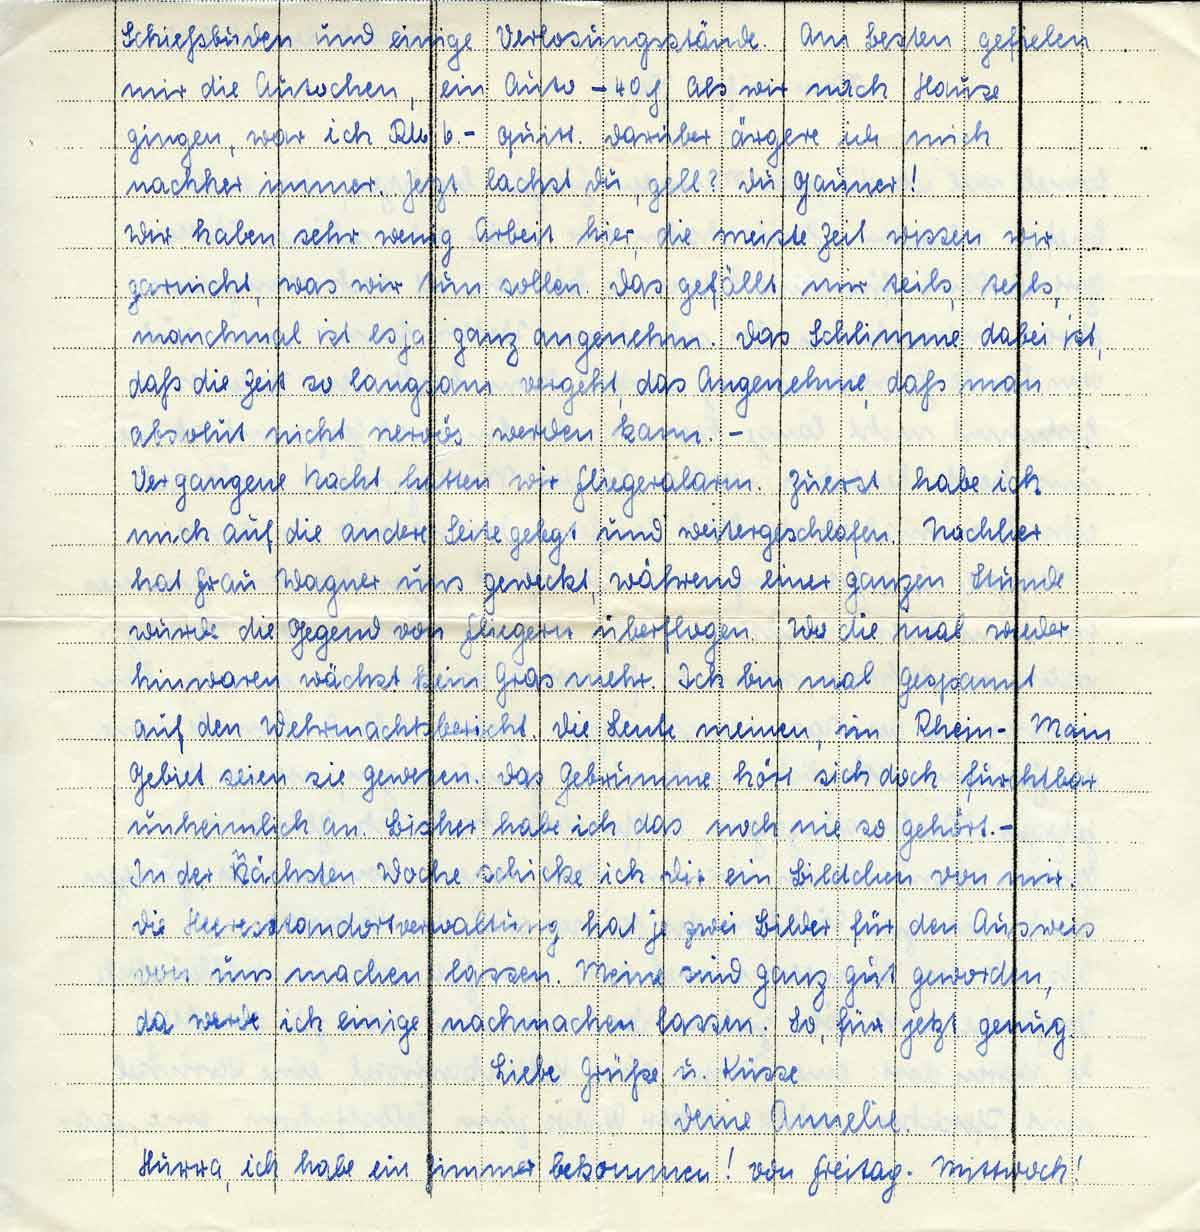 Schießbuden und einige Verlosungsstände. Am besten gefielen
mir die Autochen, ein Auto -40 ₰ Als wir nach Hause
gingen, war ich RM 6.- quitt. Darüber ärgere ich mich
nachher immer. Jetzt lachst Du, gell? Du Gauner!
Wir haben sehr wenig Arbeit hier, die meiste Zeit wissen wir
garnicht, was wir tun sollen. Das gefällt mir teils, teils,
manchmal ist es ja ganz angenehm. Das Schlimme dabei ist,
daß die Zeit so langsam vergeht, das Angenehme, daß man
absolut nicht nervös werden kann. -
Vergangene Nacht hatten wir Fliegeralarm. Zuerst habe ich
mich auf die andere Seite gelegt und weitergeschlafen. Nachher
hat Frau Wagner uns geweckt, während einer ganzen Stunde
wurde die Gegend von Fliegern überflogen. Wo die mal wieder
hinwaren wächst kein Gras mehr. Ich bin mal gespannt
auf den Wehrmachtsbericht. Die Leute meinen, im Rhein-Main
Gebiet seien sie gewesen. Das Gebrumme hört sich doch fürchtbar
unheimlich an. Bisher habe ich das noch nie so gehört.-
In der Nächsten Woche schicke ich Dir ein Bildchen von mir.
Die Heeresstandortverwaltung hat je zwei Bilder für den Ausweis
von uns machen lassen. Meine sind ganz gut geworden,
da werde ich einige nachmachen lassen. So, für jetzt genug.
Liebe Grüße u. Küsse
Deine Annelie.
Hurra, ich habe ein Zimmer bekommen! Von Freitag - Mittwoch!